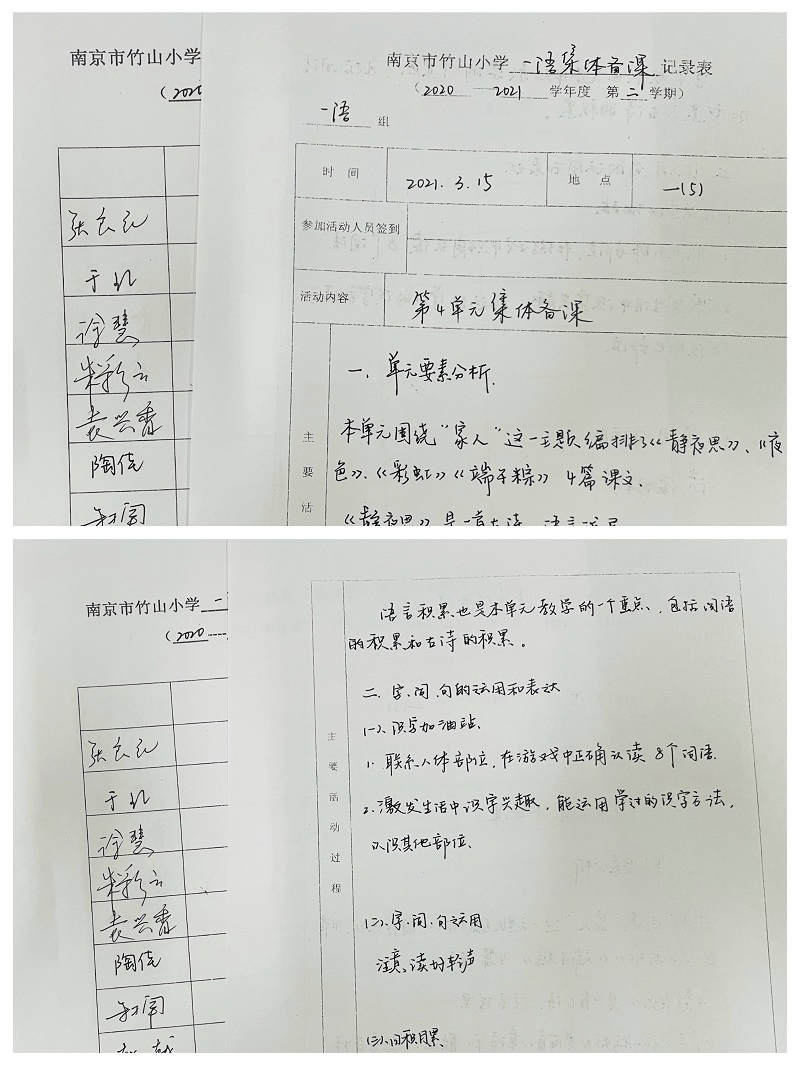 南京市竹山小学
（2020
于
徐慧
袁兴香
陶侃
南京市竹山小学 一语集体备课 记录表
（2020——2021 学年度 第二学期）
一语 组
时 间
2021.3.15
地 点
一(5)
参加活动人员签到
活动内容
第4单元集体备课
主要活
一、单元要素分析.
本单元围绕“家人”这一主题编排了《静夜思》、《夜
色》、《彩虹》《端午粽》4篇课文.
《静夜思》是一首古诗，语言
南京市竹山小学 二
（2020
于
徐慧
袁兴香
陶侃
主要活动过程
语言积累也是本单元教学的一个重点，包括词语
的积累和古诗的积累。
二. 字、词、句的运用和表达
(一)、识字加油站.
1. 联系人体部位，在游戏中正确认读 8个词语.
2. 激发生活中识字兴趣，能运用学过的识字方法，
认识其他部位.
(二)、字、词、句运用
注意读好轻声
(三)、日积月累.